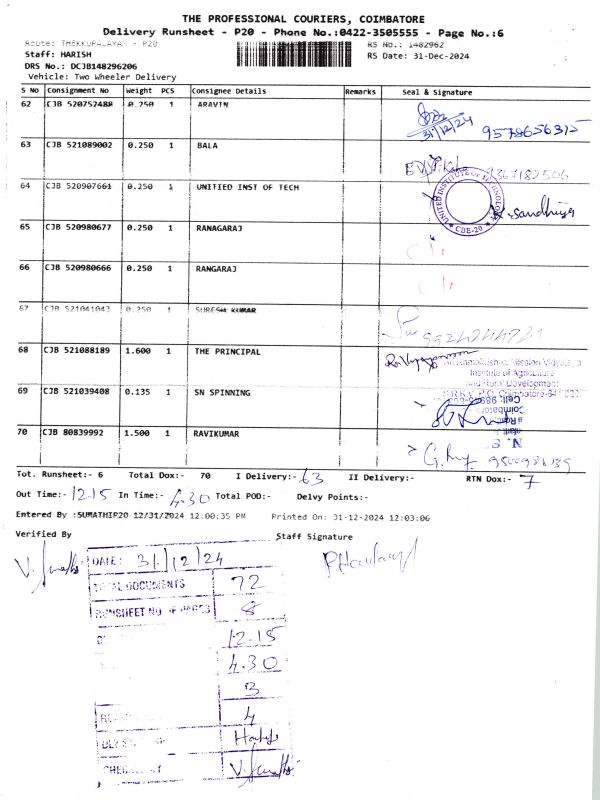 THE PROFESSIONAL COURIERS, COIMBATORE
Delivery Runsheet - P20 - Phone No.:0422-3505555 - Page No.:6
Route: THEKKUPALAYAM - P20
RS No.: 1482962
Staff: HARISH
RS Date: 31-Dec-2024
DRS No.: DCJB148296206
Vehicle: Two Wheeler Delivery
S No Consignment No Weight PCS Consignee Details Remarks Seal & Signature
62 CJB 520752488 0.250 1 ARAVIN
31/12/24 9578656315
63 CJB 521089002 0.250 1 BALA
9367182506
64 CJB 520907661 0.250 1 UNITIED INST OF TECH
UNITED INSTITUTE OF TECHNOLOGY
CBE-20
K. Sandhiya
65 CJB 520980677 0.250 1 RANAGARAJ
66 CJB 520980666 0.250 1 RANGARAJ
67 CJB 521041043 0.250 1 SURESH KUMAR
68 CJB 521088189 1.600 1 THE PRINCIPAL
Mission Vidyalaya
Institute of Agriculture
and Rural Development
Coimbatore-641 020.
69 CJB 521039408 0.135 1 SN SPINNING
Coimbatore
70 CJB 80839992 1.500 1 RAVIKUMAR
Tot. Runsheet:- 6 Total Dox:- 70 I Delivery:- 63 II Delivery:- RTN Dox:- 7
Out Time:- 12.15 In Time:- 4.30 Total POD:- Delvy Points:-
Entered By :SUMATHIP20 12/31/2024 12:00:35 PM Printed On: 31-12-2024 12:03:06
Verified By Staff Signature
DATE: 31/12/24
TOTAL DOCUMENTS 72
RUNSHEET NO. OF PAGES 8
12.15
4.30
3
4